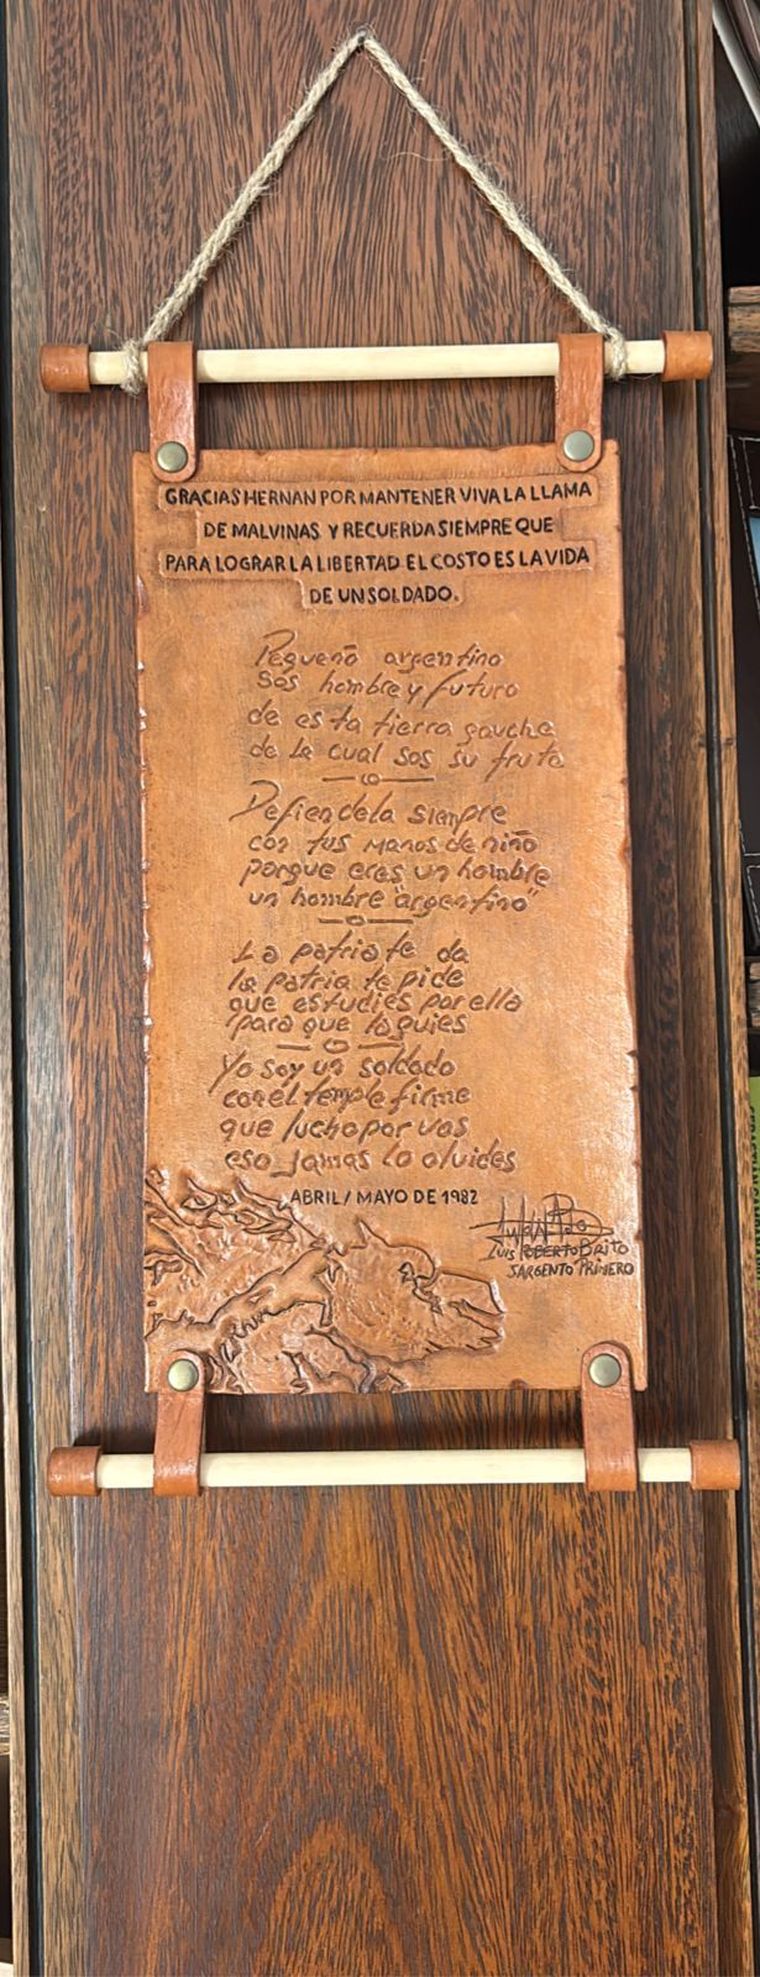 GRACIAS HERNAN POR MANTENER VIVA LA LLAMA
DE MALVINAS Y RECUERDA SIEMPRE QUE
PARA LOGRAR LA LIBERTAD EL COSTO ES LA VIDA
DE UN SOLDADO.
Pequeño argentino
sos hombre y futuro
de esta tierra gaucha
de la cual sos su fruto
Defiendela siempre
con tus manos de niño
porque eres un hombre
un hombre "argentino"
La patria te da
la patria te pide
que estudies por ella
para que la guies
Yo soy un soldado
con el temple firme
que lucho por vos
eso jamas lo olvides
ABRIL / MAYO DE 1982
LUIS ROBERTO BRITO
SARGENTO PRIMERO